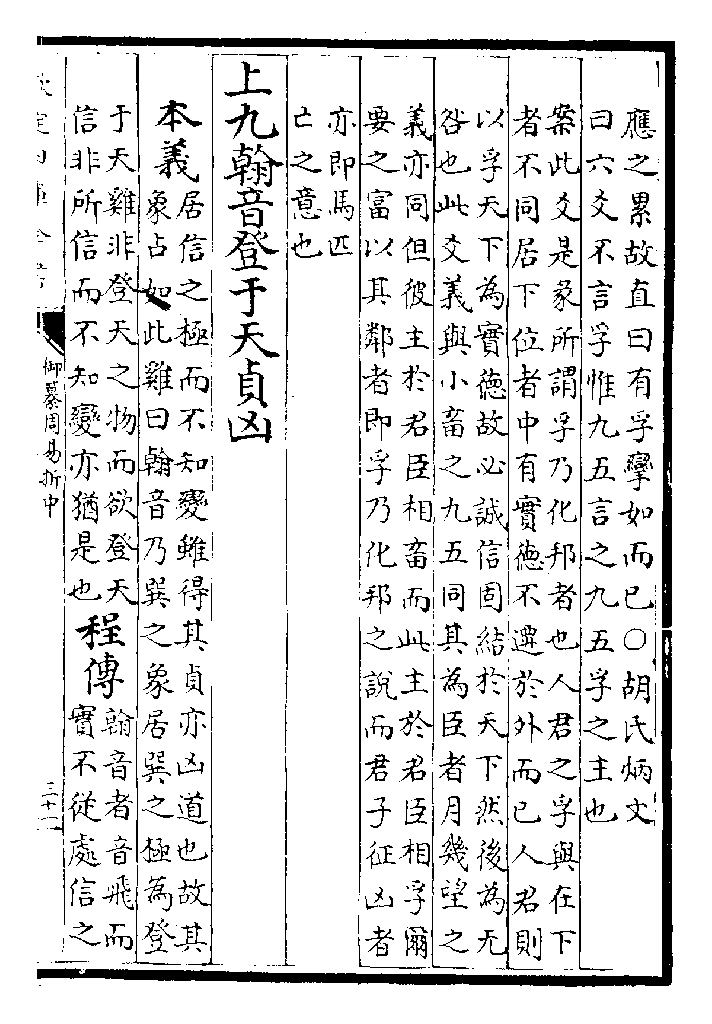 應之累故直曰有孚攣如而已○胡氏炳文
曰六爻不言孚惟九五言之九五孚之主也
案此爻是彖所謂孚乃化邦者也人君之孚與在下
者不同居下位者中有實德不遷於外而已人君則
以孚天下為實德故必誠信固結於天下然後為无
咎也此爻義與小畜之九五同其為臣者月幾望之
義亦同但彼主於君臣相畜而此主於君臣相孚爾
要之富以其鄰者即孚乃化邦之說而君子征凶者
亦即馬匹
亡之意也
上九翰音登于天貞凶
本義
居信之極而不知變雖得其貞亦凶道也故其
象占如此雞曰翰音乃巽之象居巽之極為登
于天雞非登天之物而欲登天
信非所信而不知變亦猶是也
程傳
翰音者音飛而
實不從處信之
欽定四庫全書
御纂周易折中
三十二